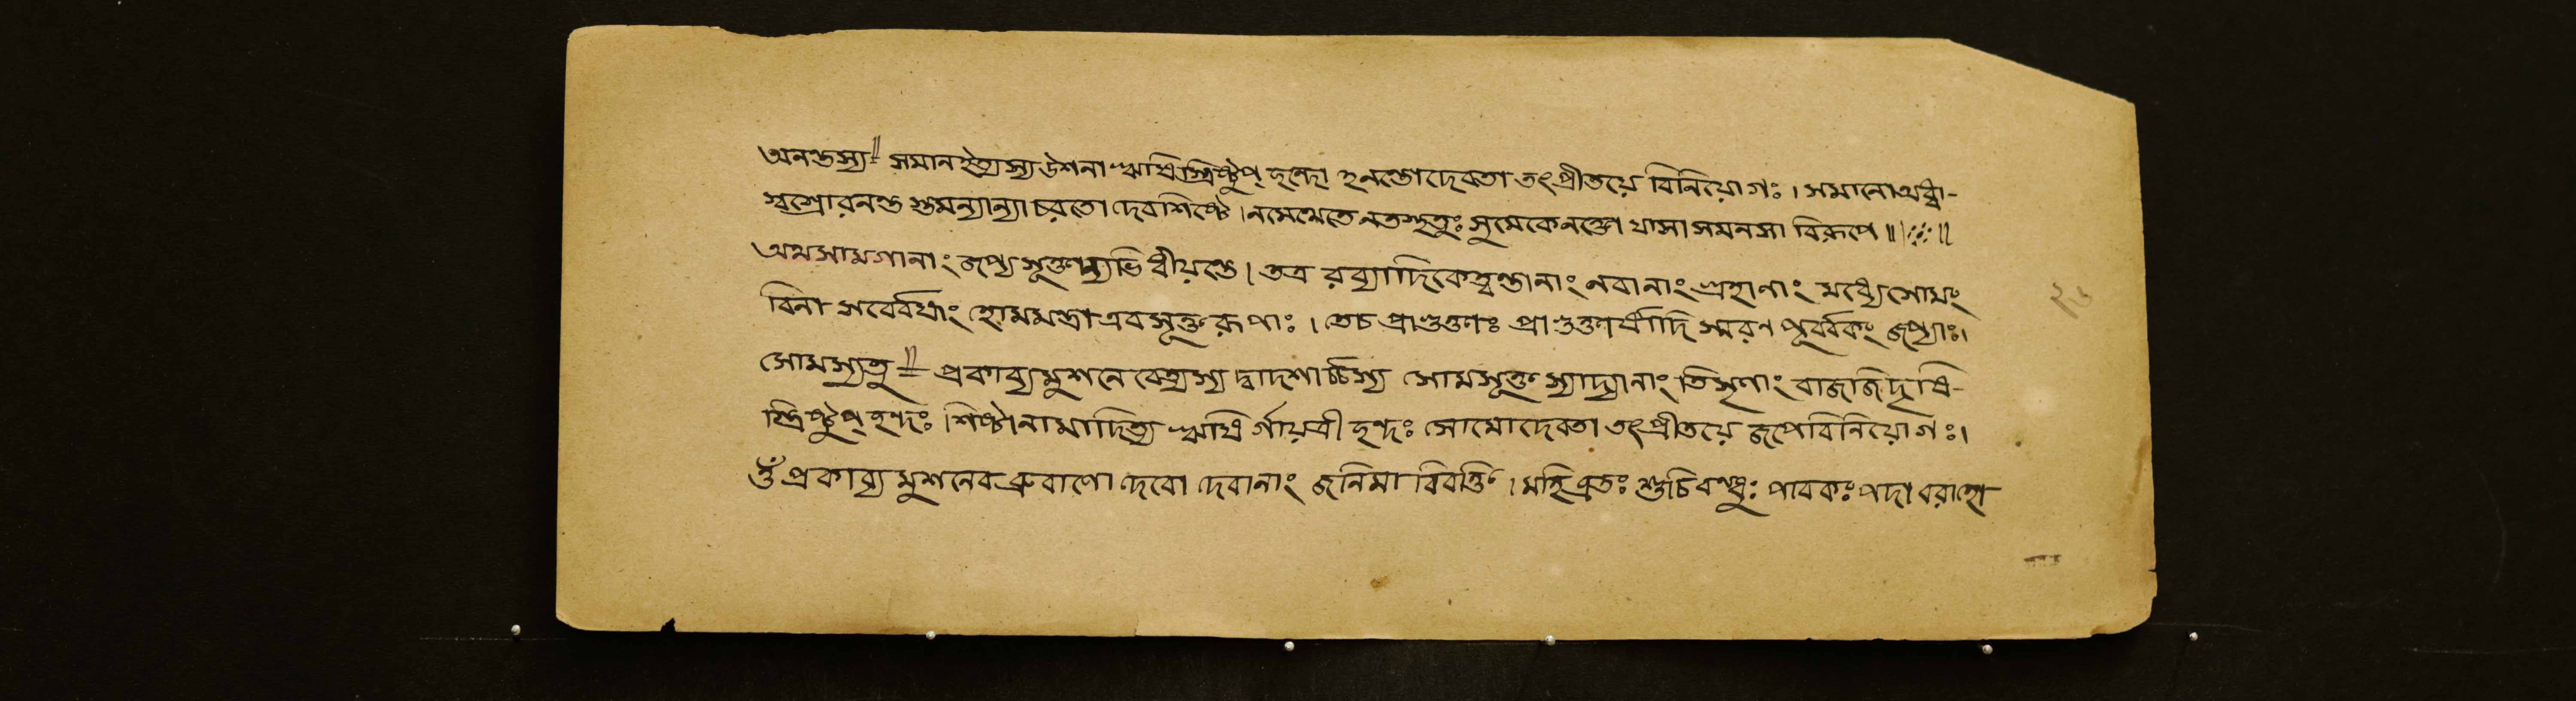 অনন্তস্য॥ সমান ইত্যস্য উশনা ঋষিস্ত্রিষ্টুপ্ ছন্দো ঽনন্তোদেবতা তৎপ্রীতয়ে বিনিয়োগঃ। সমানোঅধ্বা-
স্বস্রোরনন্ত স্তমন্যান্যা চরতো দেবশিষ্টে। নমেথেতে নতস্থতুঃ সুমেকে নক্তো ষাসা সমনসা বিরূপে॥
অথ সামগানাং জপ্য সূক্তান্যভিধীয়ন্তে। তত্র রব্যাদিকেত্বন্তানাং নবানাং গ্রহাণাং মধ্যেসোমং
বিনা সর্ব্বেষাং হোমমন্ত্রা এব সূক্ত রূপাঃ। তেচ প্রাগুক্তাঃ প্রাগুক্তার্ষাদি স্মরণ পূর্ব্বকং জপ্যাঃ।
সোমস্যতু॥ প্রকাব্যমুশনে বেত্যস্য দ্বাদশর্চ্চস্য সোমসূক্ত স্যাদ্যানাং তিসৃণাং বাজজিদৃষি-
স্ত্রিষ্টুপ্ ছন্দঃ। শিষ্টানামাদিত্য ঋষি র্গায়ত্রী ছন্দঃ সোমোদেবতা তৎপ্রীতয়ে জপেবিনিয়োগঃ।
ওঁ প্রকাব্য মুশনেব ব্রুবাণো দেবো দেবানাং জনিমা বিবক্তি। মহিব্রতঃ শুচিবন্ধুঃ পাবকঃ পদা বরাহো
২৬